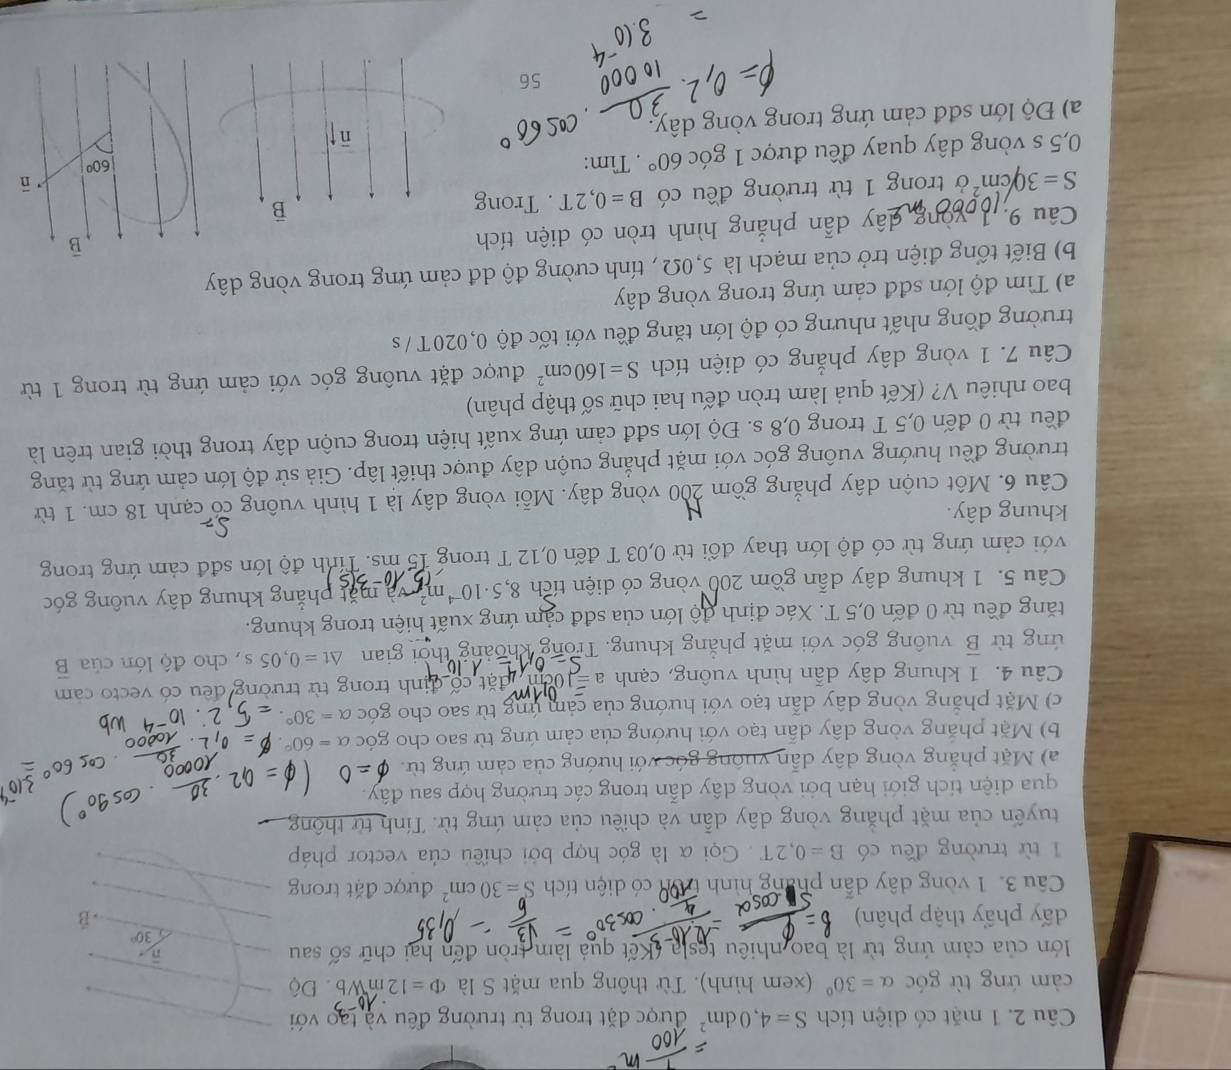 = 1/100 m
Câu 2. 1 mặt có diện tích S = 4,0dm² được đặt trong từ trường đều và tạo với
cảm ứng từ góc α = 30° (xem hình). Từ thông qua mặt S là Φ = 12mWb. Độ
.10⁻³
lớn của cảm ứng từ là bao nhiêu tesla (Kết quả làm tròn đến hai chữ số sau
dấy phẩy thập phân)
= √3/6 = 0,35
n⃗
30°
B⃗
Câu 3. 1 vòng dây dẫn phẳng hình tròn có diện tích S = 30 cm² được đặt trong
1 từ trường đều có B = 0,2T. Gọi α là góc hợp bởi chiều của vector pháp
tuyến của mặt phẳng vòng dây dẫn và chiều của cảm ứng từ. Tính từ thông
qua diện tích giới hạn bởi vòng dây dẫn trong các trường hợp sau đây.
a) Mặt phẳng vòng dây dẫn vuông góc với hướng của cảm ứng từ. ϕ = 0 (ϕ = 0,2 . 30/10000 . cos 90°)
b) Mặt phẳng vòng dây dẫn tạo với hướng của cảm ứng từ sao cho góc α = 60°. ϕ = 0,2. 30/10000 . cos 60° = 3.10⁻⁴
c) Mặt phẳng vòng dây dẫn tạo với hướng của cảm ứng từ sao cho góc α = 30°. = 5,2.10⁻⁴ Wb
= 0,1m
Câu 4. 1 khung dây dẫn hình vuông, cạnh a = 10cm, đặt cố định trong từ trường đều có vecto cảm
ứng từ B⃗ vuông góc với mặt phẳng khung. Trong khoảng thời gian Δt = 0,05 s, cho độ lớn của B⃗
tăng đều từ 0 đến 0,5 T. Xác định độ lớn của sđđ cảm ứng xuất hiện trong khung.
N S
Câu 5. 1 khung dây dẫn gồm 200 vòng có diện tích 8,5·10⁻⁴ m² và mặt phẳng khung dây vuông góc
15.10⁻³(s)
với cảm ứng từ có độ lớn thay đổi từ 0,03 T đến 0,12 T trong 15 ms. Tính độ lớn sđđ cảm ứng trong
khung dây.
N S=
Câu 6. Một cuộn dây phẳng gồm 200 vòng dây. Mỗi vòng dây là 1 hình vuông có cạnh 18 cm. 1 từ
trường đều hướng vuông góc với mặt phẳng cuộn dây được thiết lập. Giả sử độ lớn cảm ứng từ tăng
đều từ 0 đến 0,5 T trong 0,8 s. Độ lớn sđđ cảm ứng xuất hiện trong cuộn dây trong thời gian trên là
bao nhiêu V? (Kết quả làm tròn đếu hai chữ số thập phân)
Câu 7. 1 vòng dây phẳng có diện tích S = 160cm² được đặt vuông góc với cảm ứng từ trong 1 từ
trường đồng nhất nhưng có độ lớn tăng đều với tốc độ 0,020T / s
a) Tìm độ lớn sđđ cảm ứng trong vòng dây
b) Biết tổng điện trở của mạch là 5,0Ω, tính cường độ dđ cảm ứng trong vòng dây
Câu 9. 1 vòng dây dẫn phẳng hình tròn có diện tích
S = 30/10000 cm² ở trong 1 từ trường đều có B = 0,2T. Trong
0,5 s vòng dây quay đều được 1 góc 60°. Tìm:
a) Độ lớn sđđ cảm ứng trong vòng dây.
B⃗
n⃗
B⃗
n⃗
60°
ϕ = 0,2 . 30/10000 . cos 60°
= 3.10⁻⁴
56